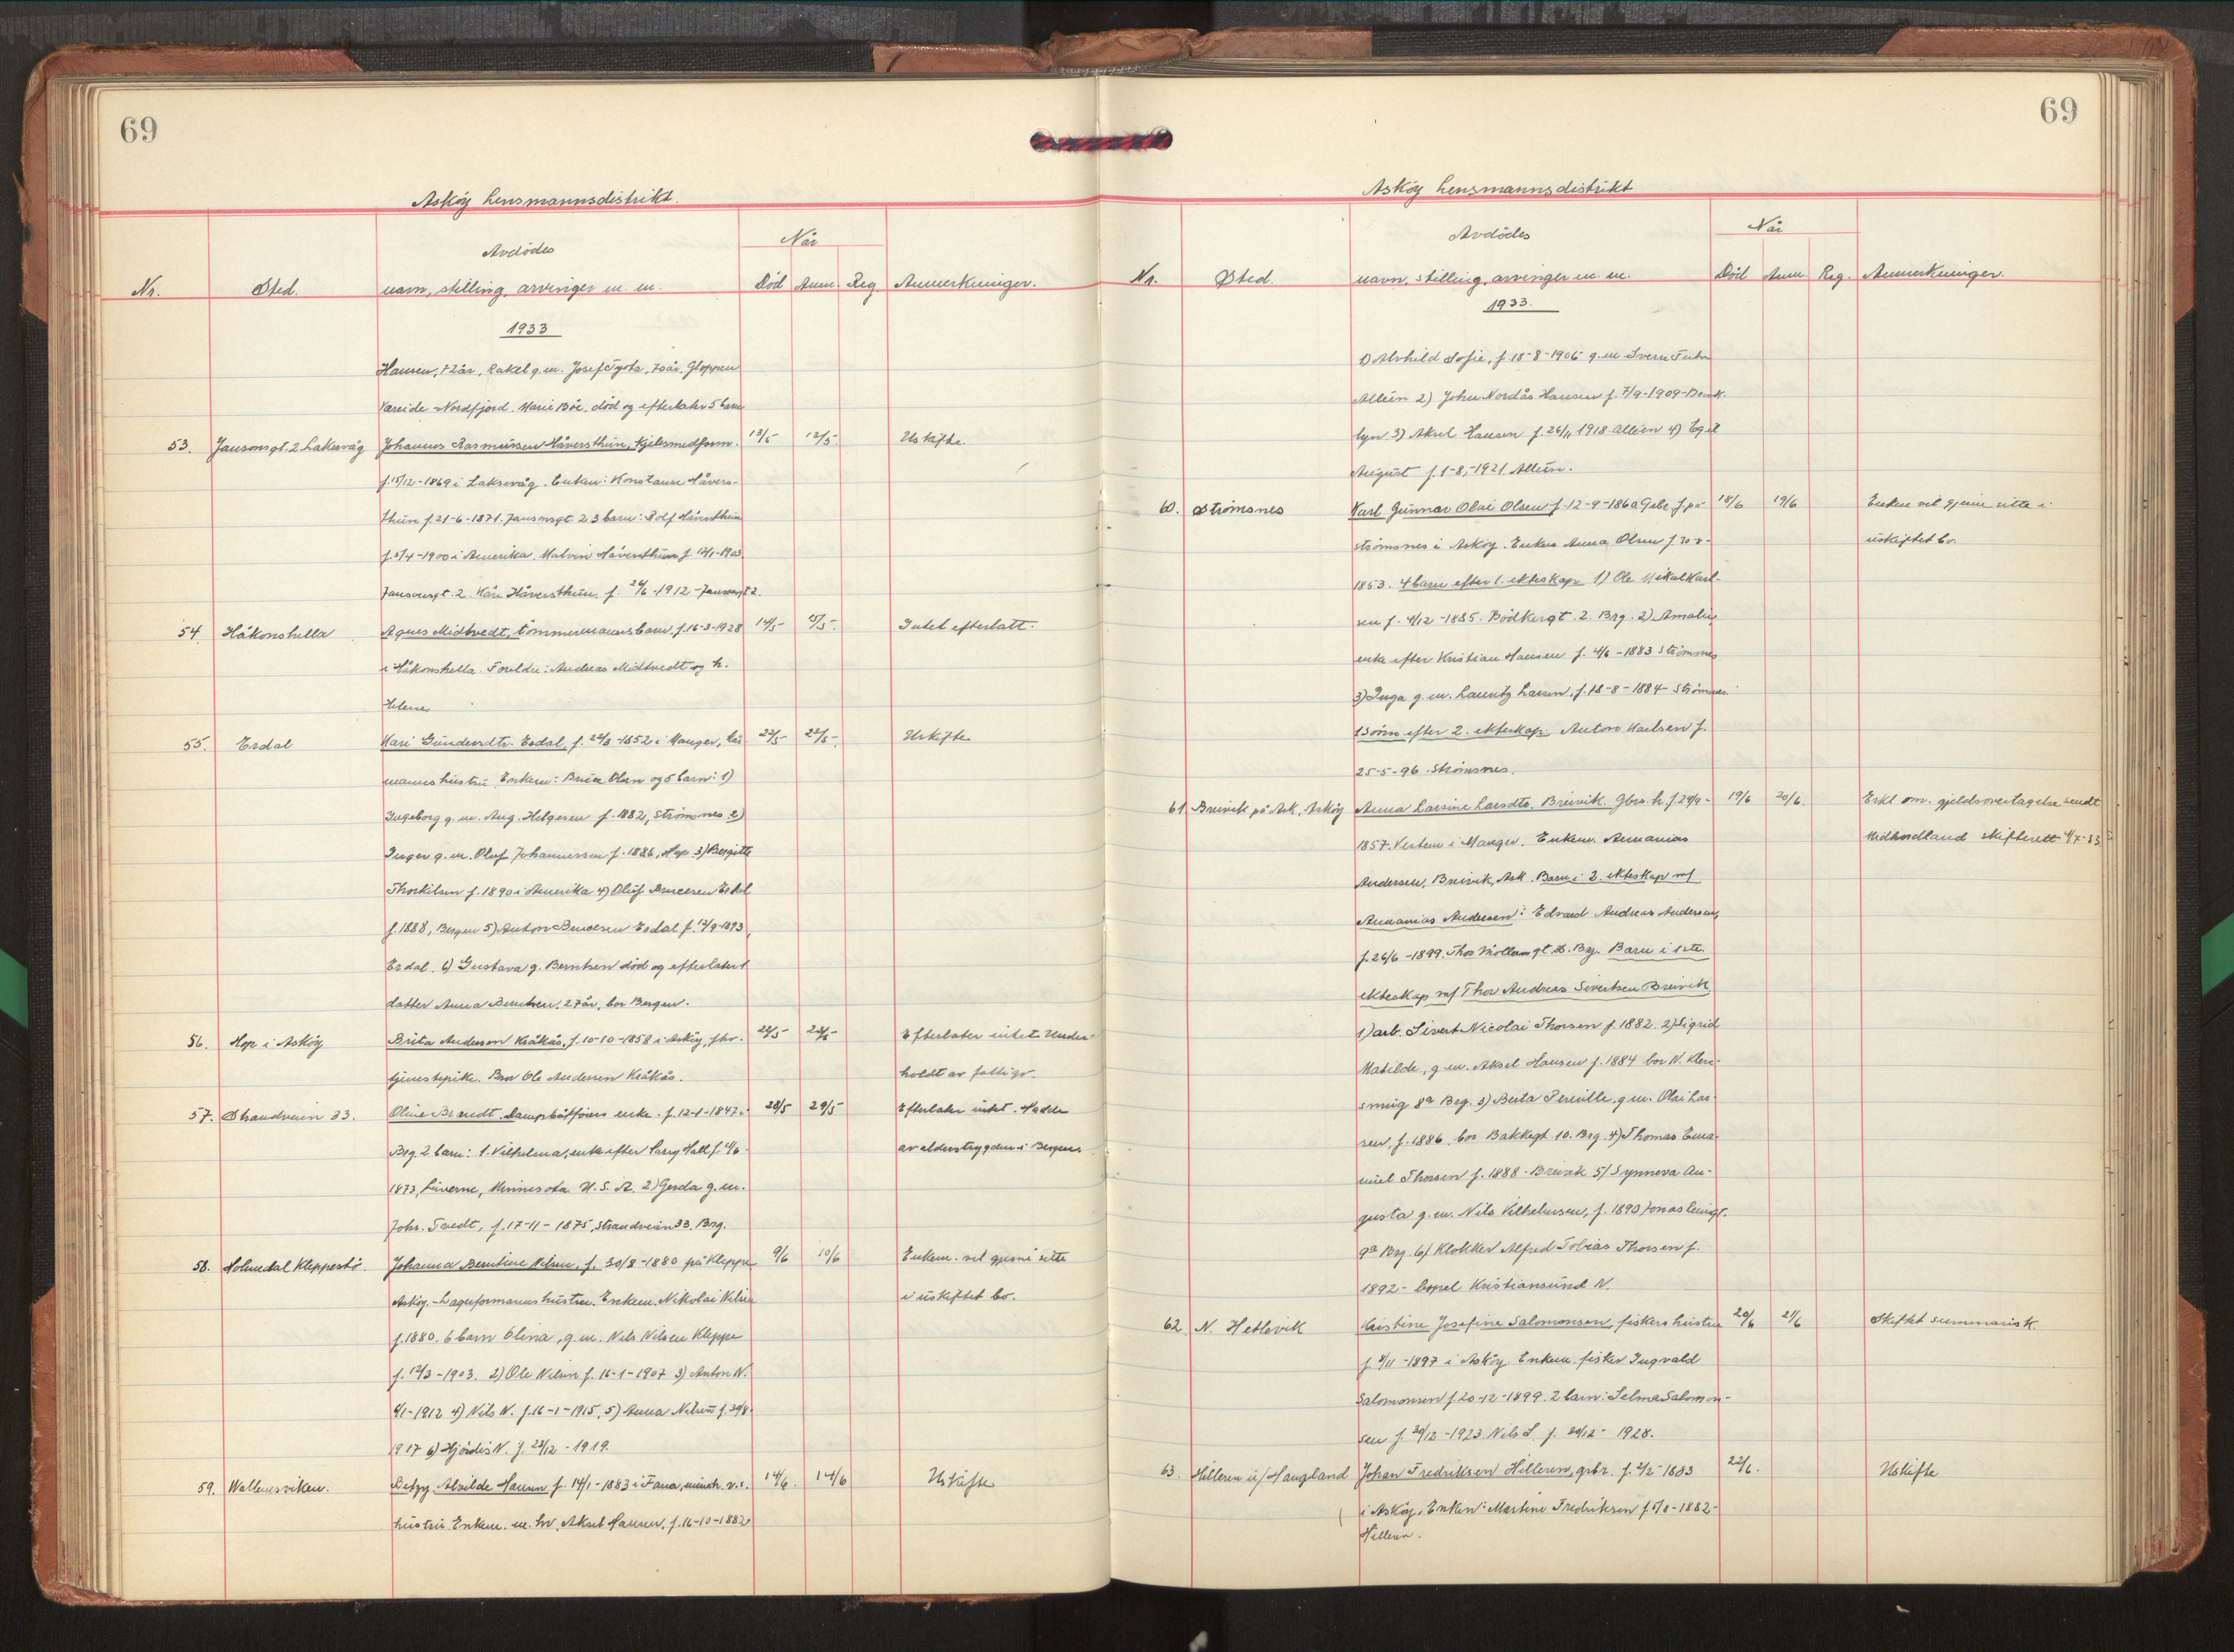 69
Asköy lensmannsdistrikt.
Avdödes
Når
Nr. Sted. navn, stilling, arvinger m. m. Död Anm. Reg. Anmerkninger.
1933
Hansen, 72 år, Rakel g.m. Josef 70 år. Gloppen
Vareide Nordfjord. Marie Böe, död og efterlater 5 barn
53. Jansonsgt. 2 Laksevåg Johannes Rasmussen Håversthun, Kjelsmedform. 13/5 12/5 Uskifte.
f. 15/12-1869 i Laksevåg. Enken: Konstanse Håvers-
thun f. 21-6-1871. Jansonsgt. 2 3 barn: Rolf Håversthun
f. 5/4-1900 i Amerika. Malvin Håversthun f. 1903
Jansonsgt. 2. Kåre Håversthun. f. 24/6-1912-Jansonsgt 2.
54. Håkonshella Agnes Midtvedt, tömmermanns barn, f. 16-3-1928 14/5 15/5. Intet efterlatt.
i Håkonshella Foreldre: Andreas Midtvedt og h.
Helene
55. Erdal Mari Gundersdtr. Erdal, f. 22/3-1852 i Manger, kår 22/5 22/5. Uskifte
manns hustru. Enkem: Bruce Olsen og 5 barn: 1)
Ingeborg g.m. Aug. Helgesen f. 1882, Strömsnes 2)
Inger g.m. Oluf Johannessen f. 1886, Hop 3) Bergitte
Thorkilsen f. 1890 i Amerika 4) Oluf Brucesen Erdal
f. 1888, Bergen 5) Anton Brucesen Erdal f. 12/9-1893,
Erdal. 6) Gustava g. Berntsen död og efterlater 1
datter Anna Berntsen, 27 år, bor Bergen.
56. Hop i Asköy Brita Andersen Kråkås, f. 10-10-1858 i Asköy, fhv. 22/5 Efterlater intet. Under-
tjenestepike. Bror Ole Andersen Kråkås. holdt av fattigv.
57. Strandveien 33. Oline Brandt. Dampbåtförers enke. f. 12-1-1847 i 28/5 29/5 Efterlater intet. Hadde
Brg. 2 barn: 1. Vilhelmа, enke efter Larry Hall f. 4/6 av alderstrygden i Bergen
1873, Luverne, Minnesota U. S. A. 2) Gerda g.m.
Johs. Tvedt, f. 17-11-1875, Strandveien 33, Brg.
58. Holmedal Kleppestö. Johanna Berntine Nilsen, f. 30/8-1880 på Kleppe 9/6 10/6 Enkem. vil gjerne sitte
Asköy.-Lagerformanns hustru. Enkem. Nikolai Nilsen i uskiftet bo.
f. 1880. 6 barn Olina, g.m. Nils Nilsen Kleppe
f. 12/3-1903. 2) Ole Nilsen f. 16-1-1907 3) Anton N.
4/1-1912 4) Nils N. f. 16-1-1915, 5) Anna Nilsen f. 29/8
1917 6) Hjördis N. f. 22/12-1919.
59. Wallemsviken. Betzy Alvilde Hansen f. 14/1-1883 i Fana, 14/6. 14/6 Uskifte
hustru Enkem. m.hv. Aksel Hansen, f. 16-10-1882
69
Asköy lensmannsdistrikt
Avdödes
Når
Nr. Sted. navn, stilling, arvinger m. m. Död Anm. Reg. Anmerkninger.
1933.
1) Alvhild Sofie, f. 18-8-1906 g.m Sverre
Alléen 2) John Nordås Hansen f. 7/9-1909-Brook-
lyn. 3) Aksel Hansen f. 26/11 1918. Alléen 4) Egil
August f. 1-8-1921 Alléen.
60. Strömsnes Karl Gunnar Olai Olsen f. 12-9-1860. Gbr. f. på 18/6 19/6 Enken vil gjerne sitte i
strömsnes i Asköy. Enken Anna Olsen f. 20-8- uskiftet bo.
1853. 4 barn efter 1. ekteskap 1) Ole Mikal Karl-
sen f. 4/12-1885. Bödkergt. 2. Brg. 2) Amalie,
enke efter Kristian Hansen f. 4/6-1883 Strömsnes
3) Inga g.m. Lauritz Larsen, f. 18-8-1884-Strömsnes.
1 sönn efter 2. ekteskap: Anton Karlsen f.
25-5-96. Strömsnes.
61 Breivik på Ask, Asköy Anna Larsine Larsdtr. Breivik. Gbrs. h. f. 29/9- 19/6 20/6. Erkl. om. gjeldsovertagelse sendt
1857. Vestern i Manger. Enkem. Annanias Midhordland skifterett 4/7-33
Andersen, Breivik, Ask. Barn i 2. ekteskap m/
Annanias Andersen: Edvard Andreas Andersen,
f. 26/6-1899. Brg. Barn i 1ste.
ekteskap m/ Thor Andreas Sivertsen Breivik
1) arb. Sivert Nicolai Thorsen f. 1882. 2) Sigrid
Matilde, g.m. Aksel Hansen f. 1884 bor N. Kleve-
smug 8a Brg. 3) Berta Pernille, g.m. Olai Lar-
sen, f. 1886. bor Bakkegt. 10. Brg. 4) Thomas Ema-
niel Thorsen f. 1888-Breivik 5) Synneva Au-
gusta g.m. Nils Vilhelmsen, f. 1890 Jonas Leinsgt.
9a Brg. 6) Klokker Alfred Tobias Thorsen f.
1892- Kristiansund N.
62. N. Hetlevik Kristine Josefine Salomonsen, fiskers hustru 20/6 21/6 Skiftet summarisk.
f. 4/11-1897 i Asköy. Enkem. fisker Ingvald
Salomonsen f. 20-12-1899. 2 barn: Selma Salomon-
sen f. 20/12-1923 Nils S. f. 20/12-1928.
63. Hilleren i/Haugland Johan Fredriksen Hilleren, grbr. f. 2/2-1883 22/6. Uskifte
i Asköy. Enken: Martine Fredriksen f. 5/8-1882-
Hilleren.